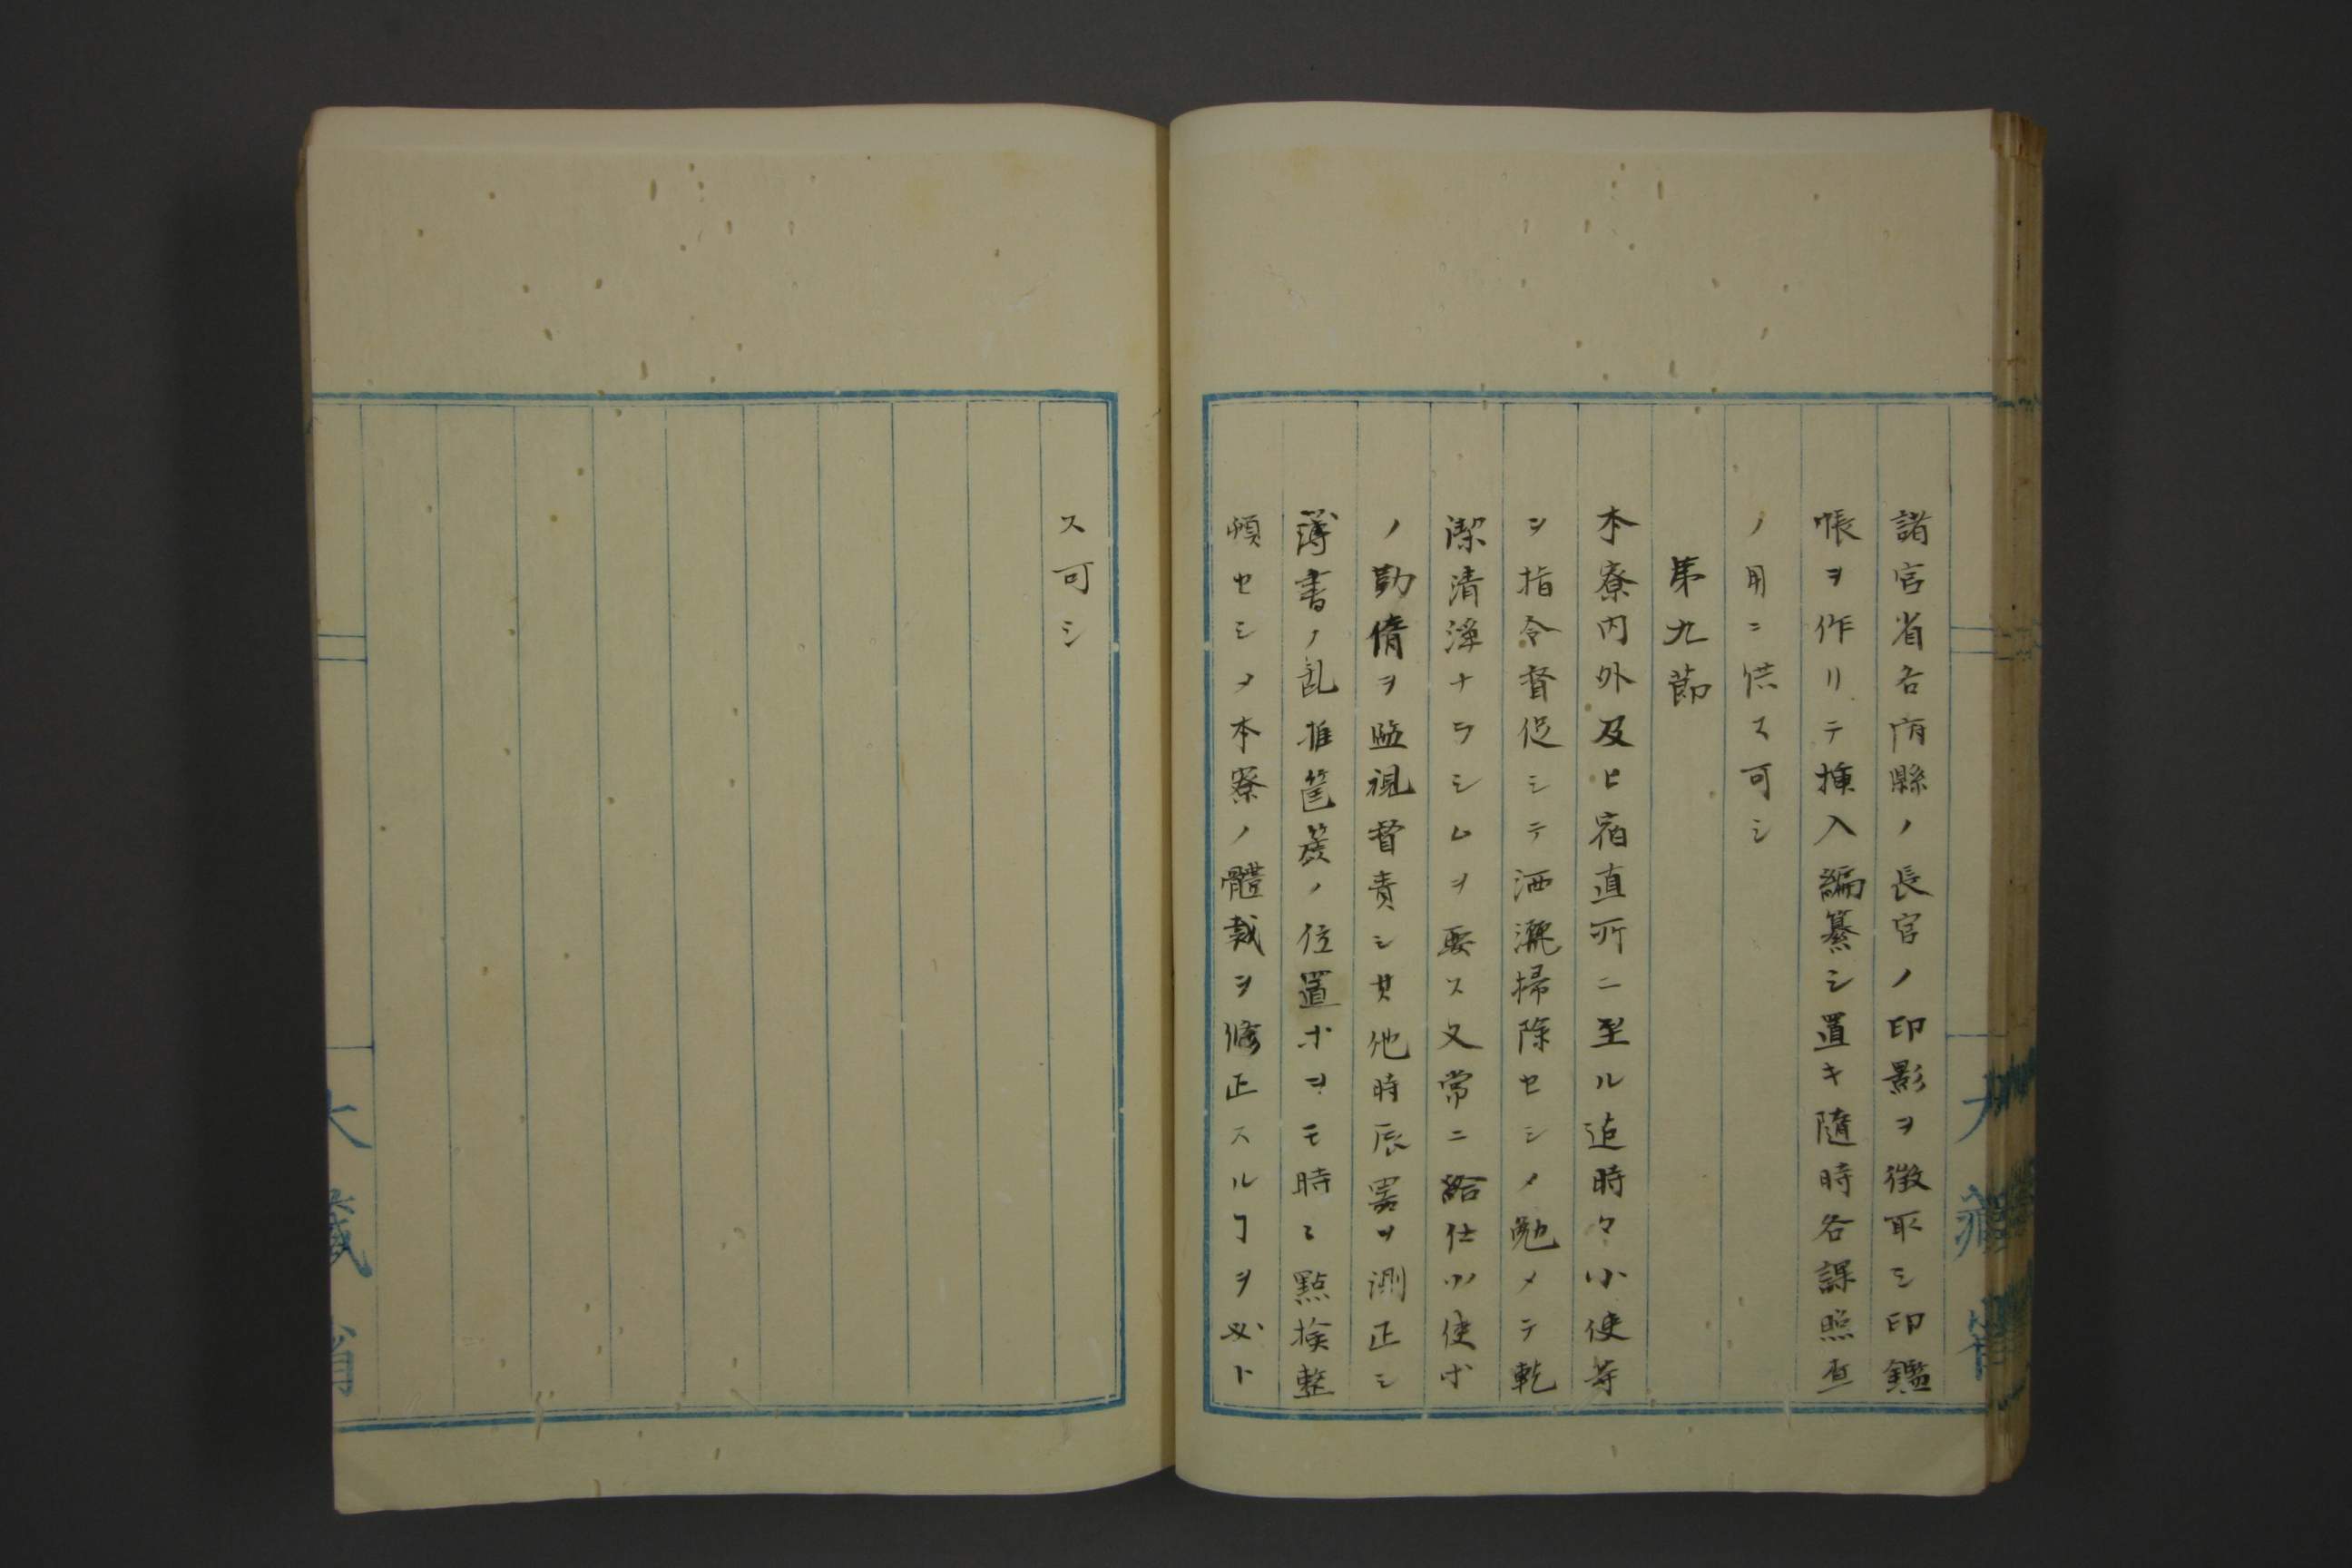 諸官省各府縣ノ長官ノ印影ヲ徴取シ印鑑
帳ヲ作リテ挿入編纂シ置キ隨時各課照査
ノ用ニ供ス可シ
第九節
本寮内外及ヒ宿直所ニ至ル迠時々小使等
ヲ指令督促シテ洒灑掃除セシメ勉メテ乾
潔清淨ナラシムヲ要ス又常ニ給仕小使ホ
ノ勤惰ヲ監視督責シ其他時辰噐ヲ測正シ
簿書ノ乱堆筐篋ノ位置ホヲモ時々點撿整
頓セシメ本寮ノ體裁ヲ修正スルヿヲ必ト
ス可シ
大藏省
大藏省